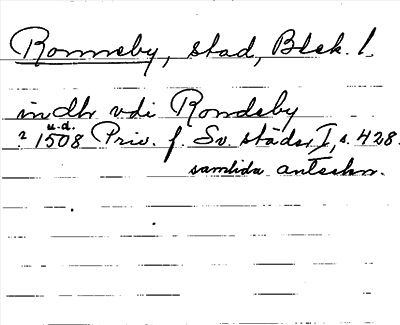 Ronneby, stad, Blek. l.
indhr vdi Rondeby
u.d.
? 1508 Priv. f. Sv. städer I, s. 428.
samtida anteckn.